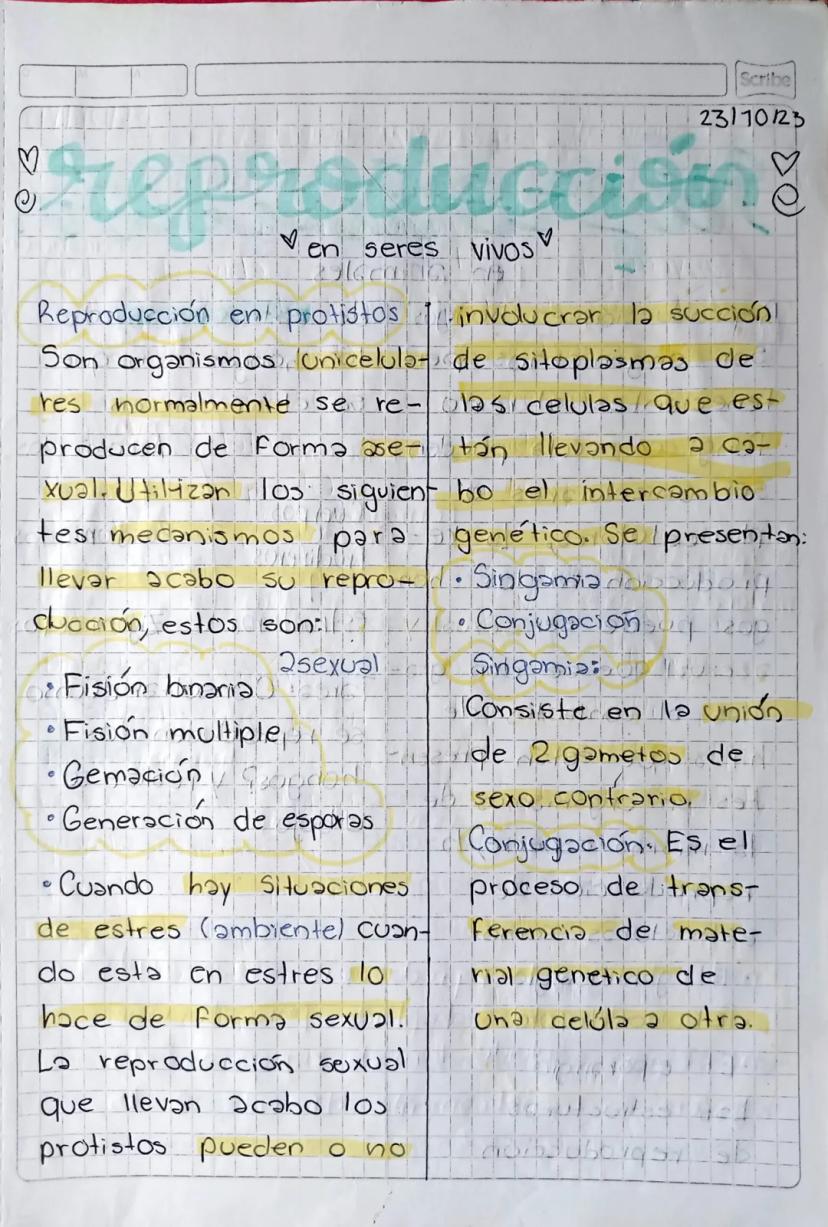 Scribe
23/10/23
reproducción
en seres vivos
Reproducción en protistos
Son organismos unicelula-
res normalmente se re-
producen de forma ase-
xual. Utilizan los siguien-
tes mecanismos para
llevar acabo su repro-
ducción, estos son:
asexual
• Fisión binaria
• Fisión multiple
• Gemación
• Generación de esporas
• Cuando hay situaciones
de estres (ambiente) cuan-
do esta en estres lo
hace de forma sexual.
La reproducción sexual
que llevan acabo los
protistos pueden o no
involucrar la succión
de sitoplasmas de
las celulas que es-
tán llevando a ca-
bo el intercambio
genético. Se presentan:
• Singamia
• Conjugación
Singamia:
Consiste en la unión
de 2 gametos de
sexo contrario.
Conjugación. Es el
proceso de trans-
ferencia de mate-
rial genetico de
una celúla a otra.